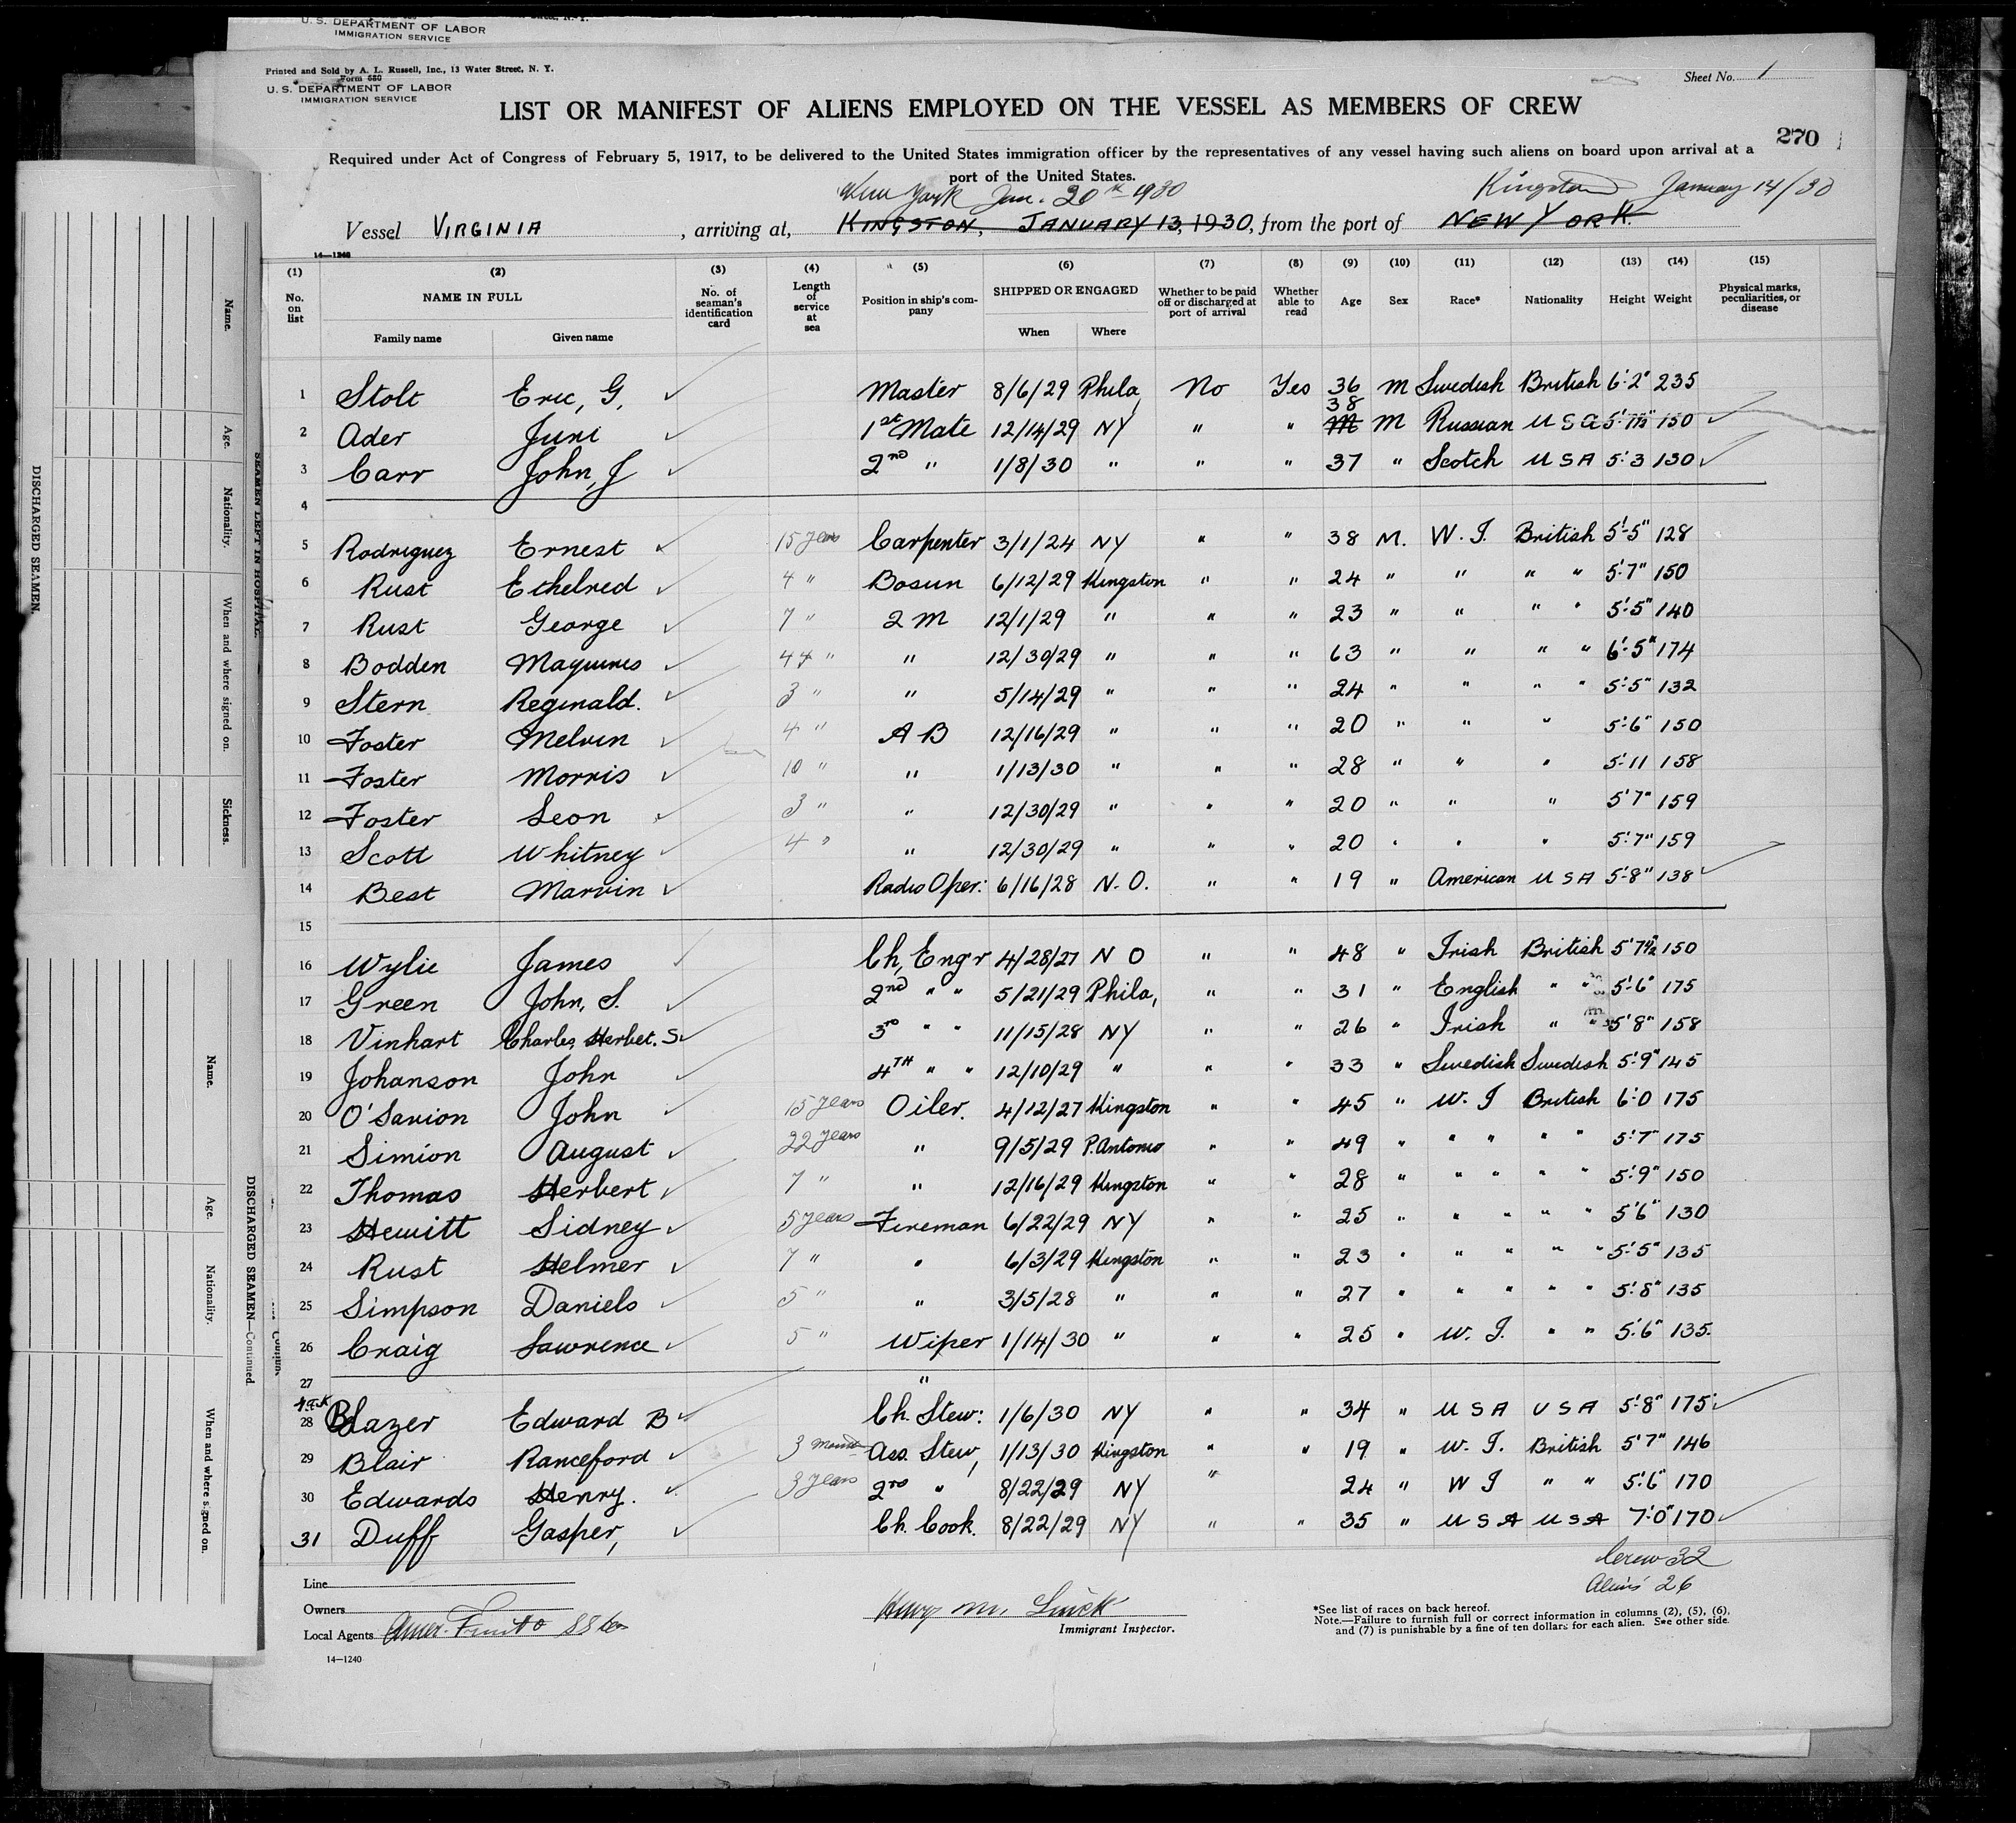 U. S. DEPARTMENT OF LABOR
IMMIGRATION SERVICE
Printed and Sold by A. L. Russell, Inc., 13 Water Street, N. Y.
Form 680
U. S. DEPARTMENT OF LABOR
IMMIGRATION SERVICE
Sheet No. 1
LIST OR MANIFEST OF ALIENS EMPLOYED ON THE VESSEL AS MEMBERS OF CREW
270
Required under Act of Congress of February 5, 1917, to be delivered to the United States immigration officer by the representatives of any vessel having such aliens on board upon arrival at a
port of the United States.
New York Jan. 20th 1930 Kingston January 14/30
Vessel VIRGINIA, arriving at, KINGSTON, JANUARY 13, 1930, from the port of NEW YORK
14—1240
(1) (2) (3) (4) (5) (6) (7) (8) (9) (10) (11) (12) (13) (14) (15)
No. on list NAME IN FULL Family name Given name No. of seaman's identification card Length of service at sea Position in ship's company SHIPPED OR ENGAGED When Where Whether to be paid off or discharged at port of arrival Whether able to read Age Sex Race* Nationality Height Weight Physical marks, peculiarities, or disease
1 Stolt Eric, G. ✓ Master 8/6/29 Phila, No Yes 36 M Swedish British 6'-2" 235
2 Ader Juri ✓ 1st Mate 12/14/29 NY " " 38 M Russian U S A 5'-7½" 150 ✓
3 Carr John, J ✓ 2nd " 1/8/30 " " " 37 " Scotch U S A 5'-3 130 ✓
4
5 Rodriguez Ernest ✓ 15 years Carpenter 3/1/24 NY " " 38 M. W. I. British 5'-5" 128
6 Rust Ethelred ✓ 4 " Bosun 6/12/29 Kingston " " 24 " " " " 5'-7" 150
7 Rust George ✓ 7 " 2 M 12/1/29 " " " 23 " " " " 5'-5" 140
8 Bodden ✓ 44 " " 12/30/29 " " " 63 " " " " 6'-5" 174
9 Stern Reginald. ✓ 3 " " 5/14/29 " " " 24 " " " " 5'-5" 132
10 Foster Melvin ✓ 4 " A B 12/16/29 " " " 20 " " " 5'-6" 150
11 Foster Morris ✓ 10 " " 1/13/30 " " " 28 " " " 5'-11 158
12 Foster Leon ✓ 3 " " 12/30/29 " " " 20 " " " 5'7" 159
13 Scott Whitney ✓ 4 " " 12/30/29 " " " 20 " " " 5'-7" 159
14 Best Marvin ✓ Radio Oper: 6/16/28 N. O. " " 19 " American U S A 5'-8" 138 ✓
15
16 Wylie James ✓ Ch, Eng'r 4/28/27 N O " " 48 " Irish British 5'7½" 150
17 Green John, S. ✓ 2nd " " 5/21/29 Phila, " " 31 " English " " 5'-6" 175
18 Vinhart Charles, Herbet. S ✓ 3rd " " 11/15/28 NY " " 26 " Irish " " 5'8" 158
19 Johanson John ✓ 4TH " " 12/10/29 " " " 33 " Swedish Swedish 5'-9" 145
20 O'Savion John ✓ 15 years Oiler. 4/12/27 Kingston " " 45 " W. I British 6'-0 175
21 Simion August ✓ 22 years " 9/5/29 P. Antonio " " 49 " " " " " 5'-7" 175
22 Thomas Herbert ✓ 7 " " 12/16/29 Kingston " " 28 " " " " " 5'-9" 150
23 Hewitt Sidney ✓ 5 years Fireman 6/22/29 NY " " 25 " " " " " 5'6" 130
24 Rust Helmer ✓ 7 " " 6/3/29 Kingston " " 23 " " " " " 5'-5" 135
25 Simpson Daniels ✓ 5 " " 3/5/28 " " " 27 " " " " " 5'-8" 135
26 Craig Lawrence ✓ 5 " Wiper 1/14/30 " " " 25 " W. I. " " 5'-6" 135.
27 "
28 Blazer Edward B ✓ Ch. Stew: 1/6/30 NY " " 34 " U S A U S A 5'-8" 175 ✓
29 Blair Ranceford ✓ 3 Ass. Stew, 1/13/30 Kingston " " 19 " W. I. British 5'7" 146
30 Edwards Henry. ✓ 3 years 2nd " 8/22/29 NY " 24 " W I " " 5'-6" 170
31 Duff Gasper, ✓ Ch. Cook. 8/22/29 NY " " 35 " U S A U S A 7'-0" 170 ✓
Crew 32
Aliens 26
Line
Owners
Local Agents Amer. Fruit & SS Co
Immigrant Inspector.
*See list of races on back hereof.
Note.—Failure to furnish full or correct information in columns (2), (5), (6),
and (7) is punishable by a fine of ten dollars for each alien. See other side.
14—1240
SEAMEN LEFT IN HOSPITAL.
Name. Age. Nationality. When and where signed on. Sickness.
DISCHARGED SEAMEN.
DISCHARGED SEAMEN—Continued.
Name. Age. Nationality. When and where signed on.